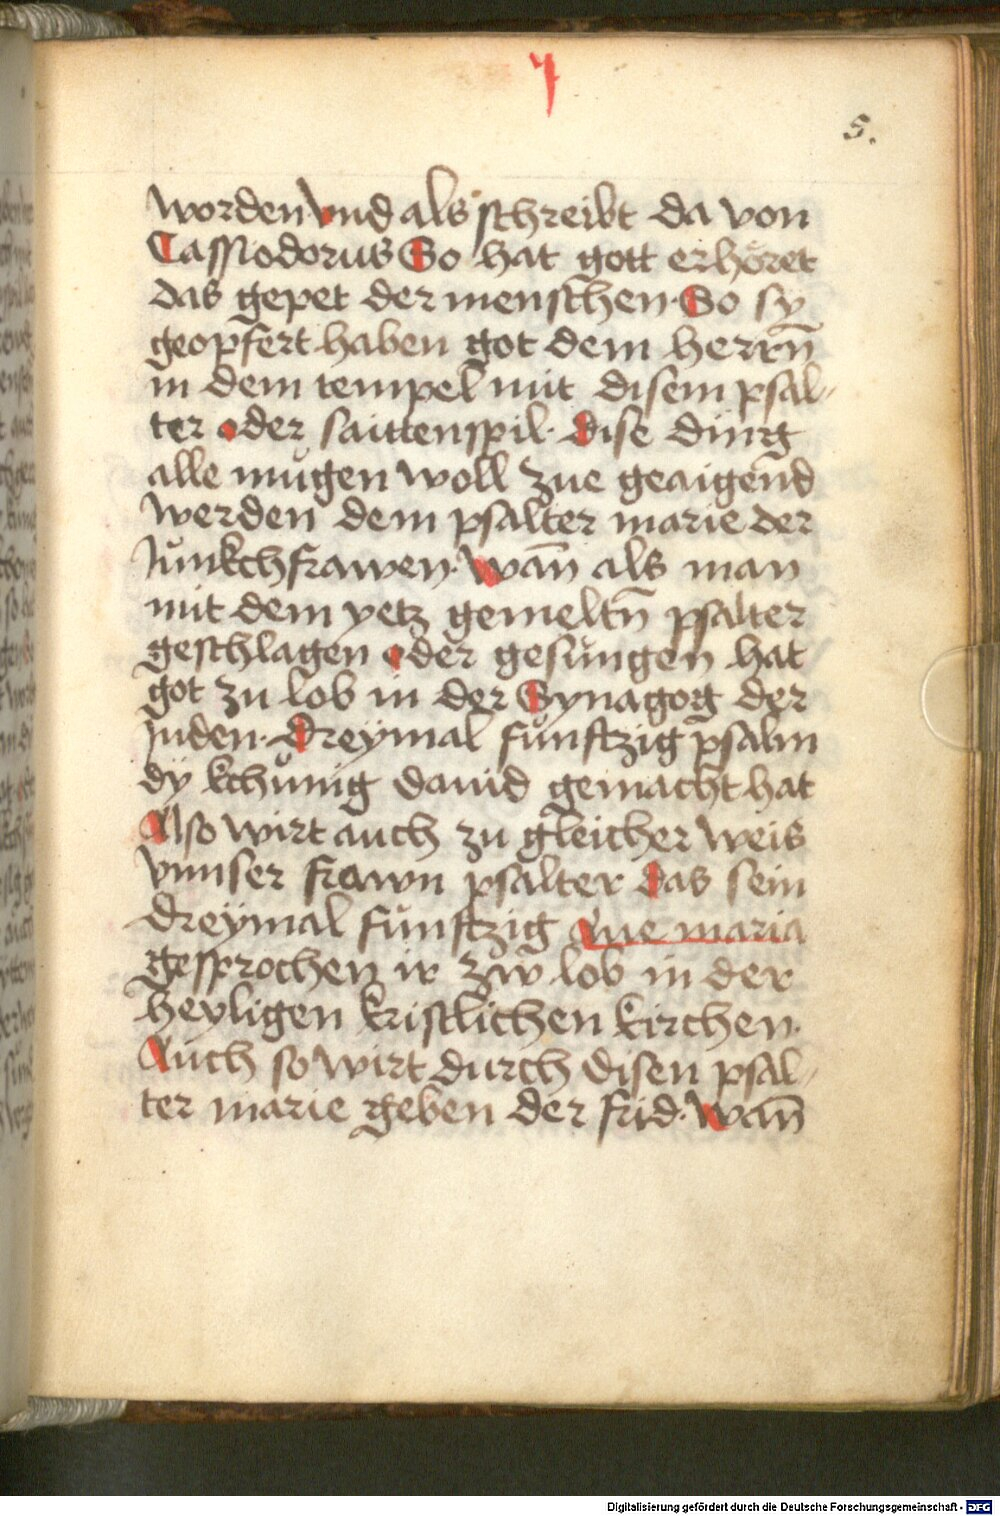 5.
worden vnd als schreibt da von
Cassiodorus So hat gott erhöret
das gepet der menschen· So sy
geopfert haben got dem herrn̄
in dem tempel mit disem psal-
ter oder saittenspil· dise ding
alle mugen woll zue geaigend
werden dem psalter marie der
Junkchfrawen· wan̄ als man
mit dem yetz gemeltn̄ psalter
geschlagen oder gesungen hat
got zu lob in der Synagog der
Juden· dreymal fünftzig psalm
dÿ kchůnig dauid gemacht hat
Also wirt auch zu gleicher weis
vnnser frawn psalter das sein
dreÿmal fünftzig Aue maria
gesprochen ir zẘ lob in der
heyligen kristlichen kirchen·
Auch so wirt durch disen psal-
ter marie geben der frid· wan̄
Digitalisierung gefördert durch die Deutsche Forschungsgemeinschaft - DFG